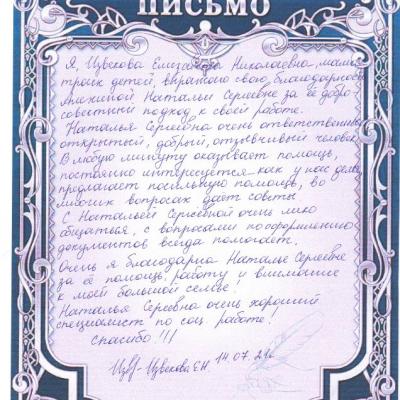 ПИСЬМО
Я, Цувекова Елизавета Николаевна, мама
троих детей, выражаю свою благодарность
Алехиной Наталье Сергеевне за её добро-
совестный подход к своей работе.
Наталья Сергеевна очень ответственный
открытый, добрый, отзывчивый человек
В любую минуту оказывает помощь,
постоянно интересуется как у нас дела,
предлагает посильную помощь, во
многих вопросах даёт советы
С Натальей Сергеевной очень легко
общаться, с вопросами по оформлению
документов всегда помогает.
Очень я благодарна Наталье Сергеевне
за её помощь, работу и внимание
к моей большой семье!
Наталья Сергеевна очень хороший
специалист по соц. работе!
Спасибо!!!
Цувекова ЕН 14.07.21г.